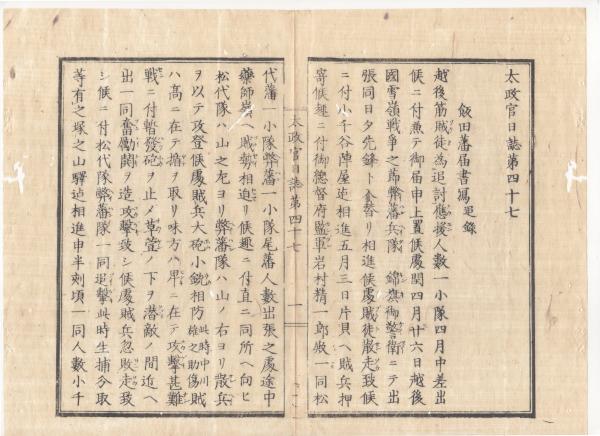 太政官日誌第四十七
飯田藩届書寫 追錄
越後筋賊徒為追討應援人數一小隊四月中差出
候ニ付兼テ御届申上置候處閏四月廿六日越後
國雪嶺戰爭之節弊藩兵隊 錦旗御警衛ニテ出
張同日夕先鋒ト人替リ相進候處賊徒散走致候
ニ付小千谷陣屋迠相進五月三日片貝ヘ賊兵押
寄候趣ニ付御總督府監軍岩村精一郎殿一同松
太政官日誌第四十七 一
代藩一小隊弊藩一小隊尾藩人數出張之處途中
藥師嶺ヘ賊勢相廻リ候趣ニ付直ニ同所ヘ向ヒ
松代隊ハ山之左ヨリ弊藩隊ハ山ノ右ヨリ散兵
ヲ以テ攻登候處賊兵大砲小銃相防此時中川雄之助傷賊
ハ高ニ在テ搚ヲ取リ味方ハ卑ニ在テ攻擊甚難
戰ニ付暫發砲ヲ止メ草萱ノ下ヲ潜敵ノ間近ヘ
出一同奮勵鬨ヲ造攻擊致シ候處賊兵忽敗走致
シ候ニ付松代隊弊藩隊一同追擊此時生捕分取
等有之塚之山驛迠相進申半刻頃一同人數小千